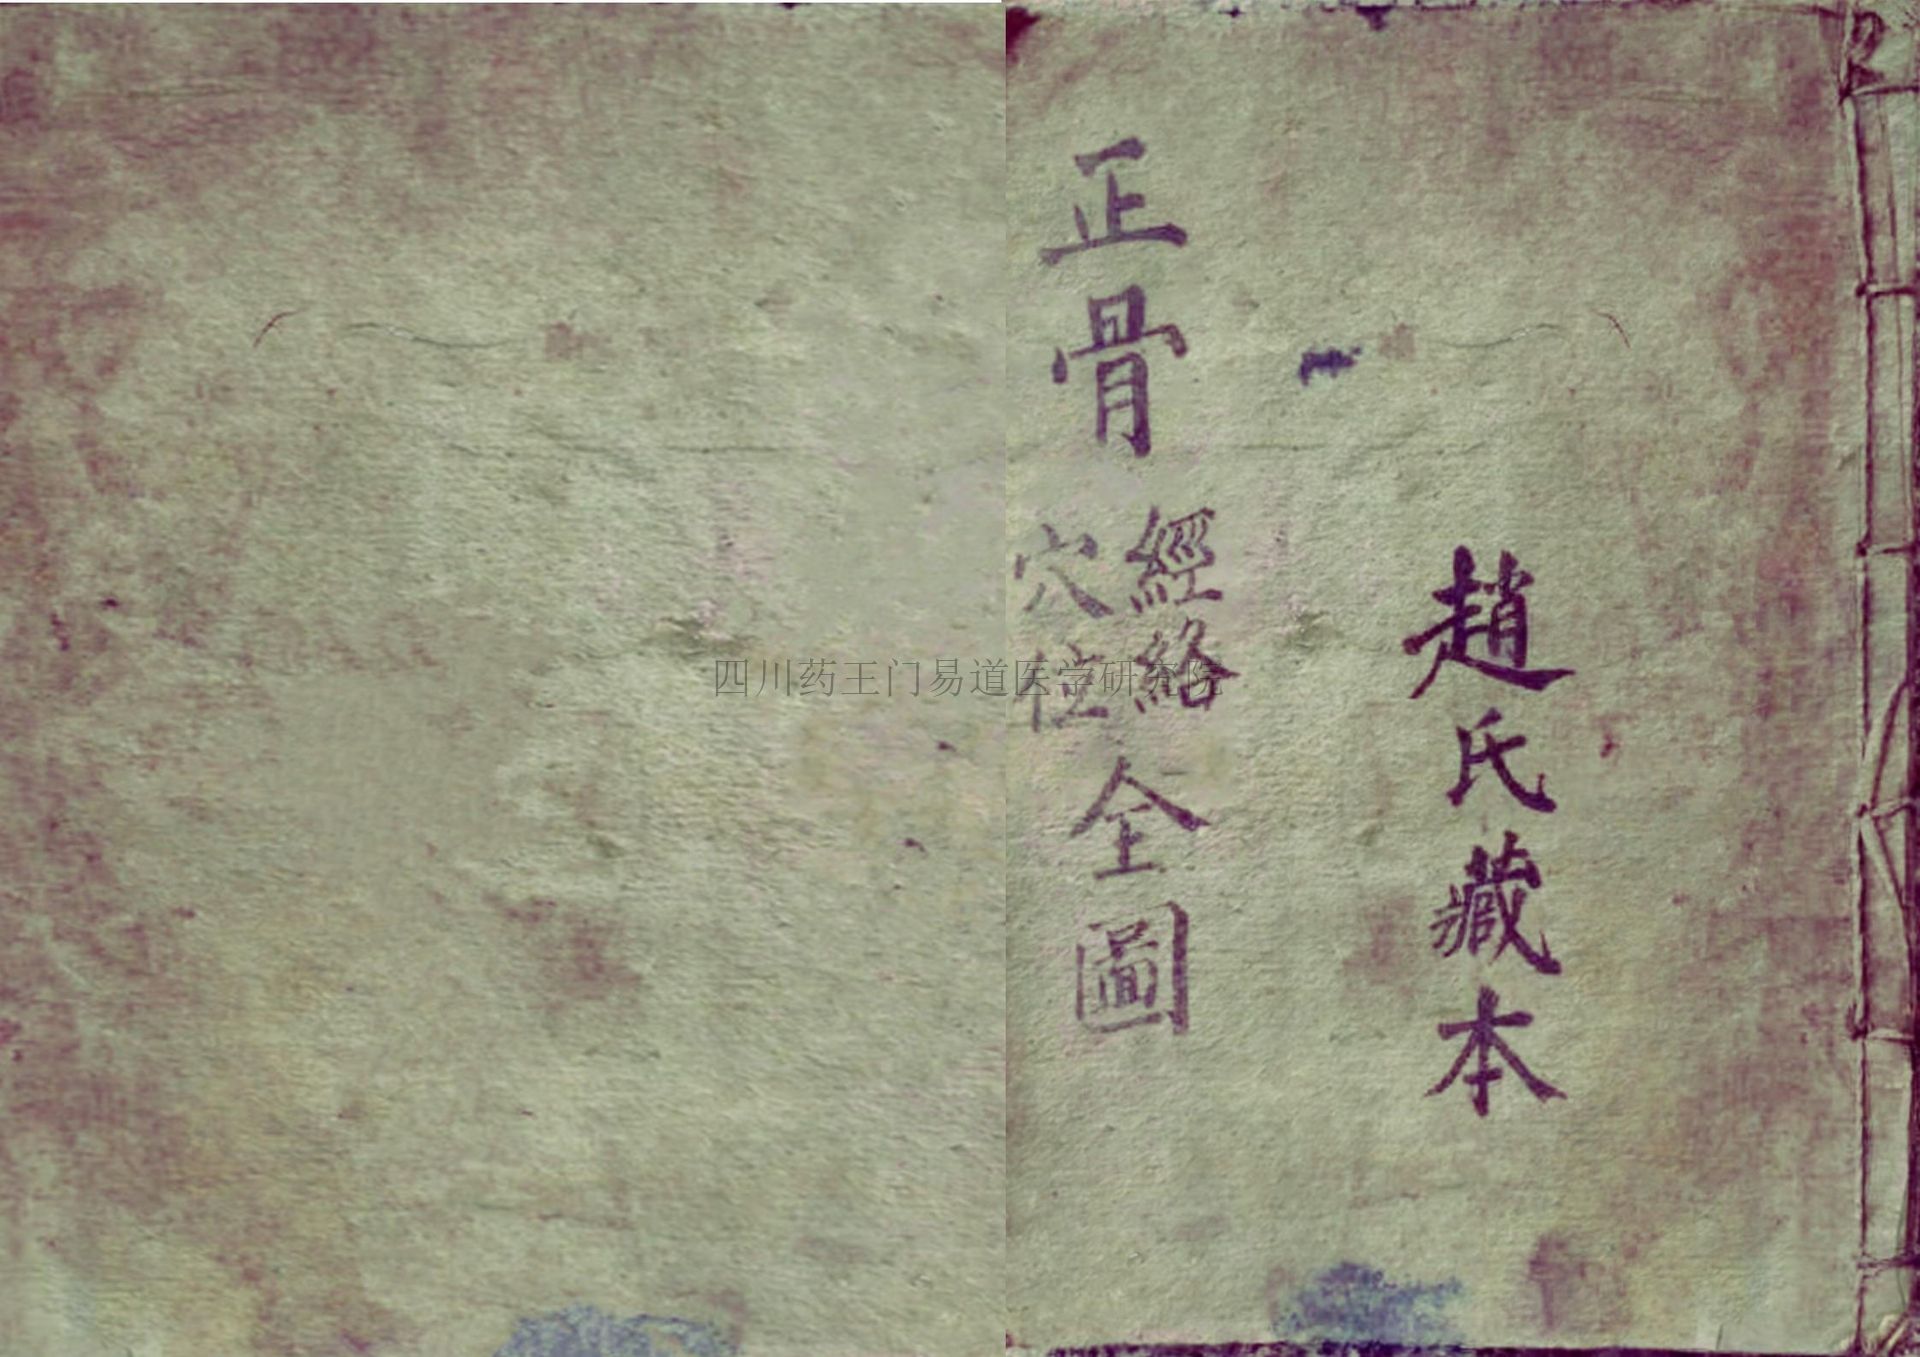 趙氏藏本
正骨經絡穴位全圖
四川药王门易道医学研究院